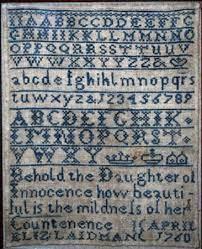 AABBCCDDEEFF
GGHHIKKLLMMNNO
OPPQQRRSSTTUUV
VWWXXYYZZ&
abcdefghiklmnopqrs
tuwxyz&123456789
ABCDEFGHIK
LMNOPQRST
VWXY
Behold the Daughter of
Innocence how beauti-
ful is the mildness of her
Countenence 15 APRIL
ELIZ LAIDMAN 1760